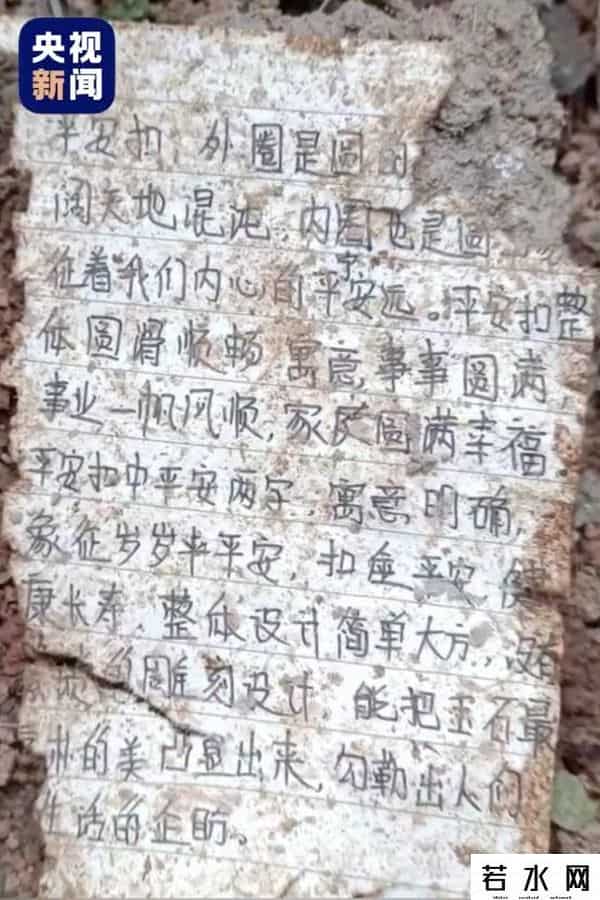 央视
新闻
平安扣，外圈是圆的
阔天地混沌，内圈也是圆
征着我们内心的平安宁远。平安扣整
体圆滑顺畅 寓意事事圆满，
事业一帆风顺，家庭圆满幸福
平安扣中平安两字，寓意明确，
象征岁岁平平安，扣座平安 健
康长寿，整体设计简单大方，没有
的雕刻设计，能把玉石最
的美凸显出来，勾勒出人们
生活的企盼。
若水网